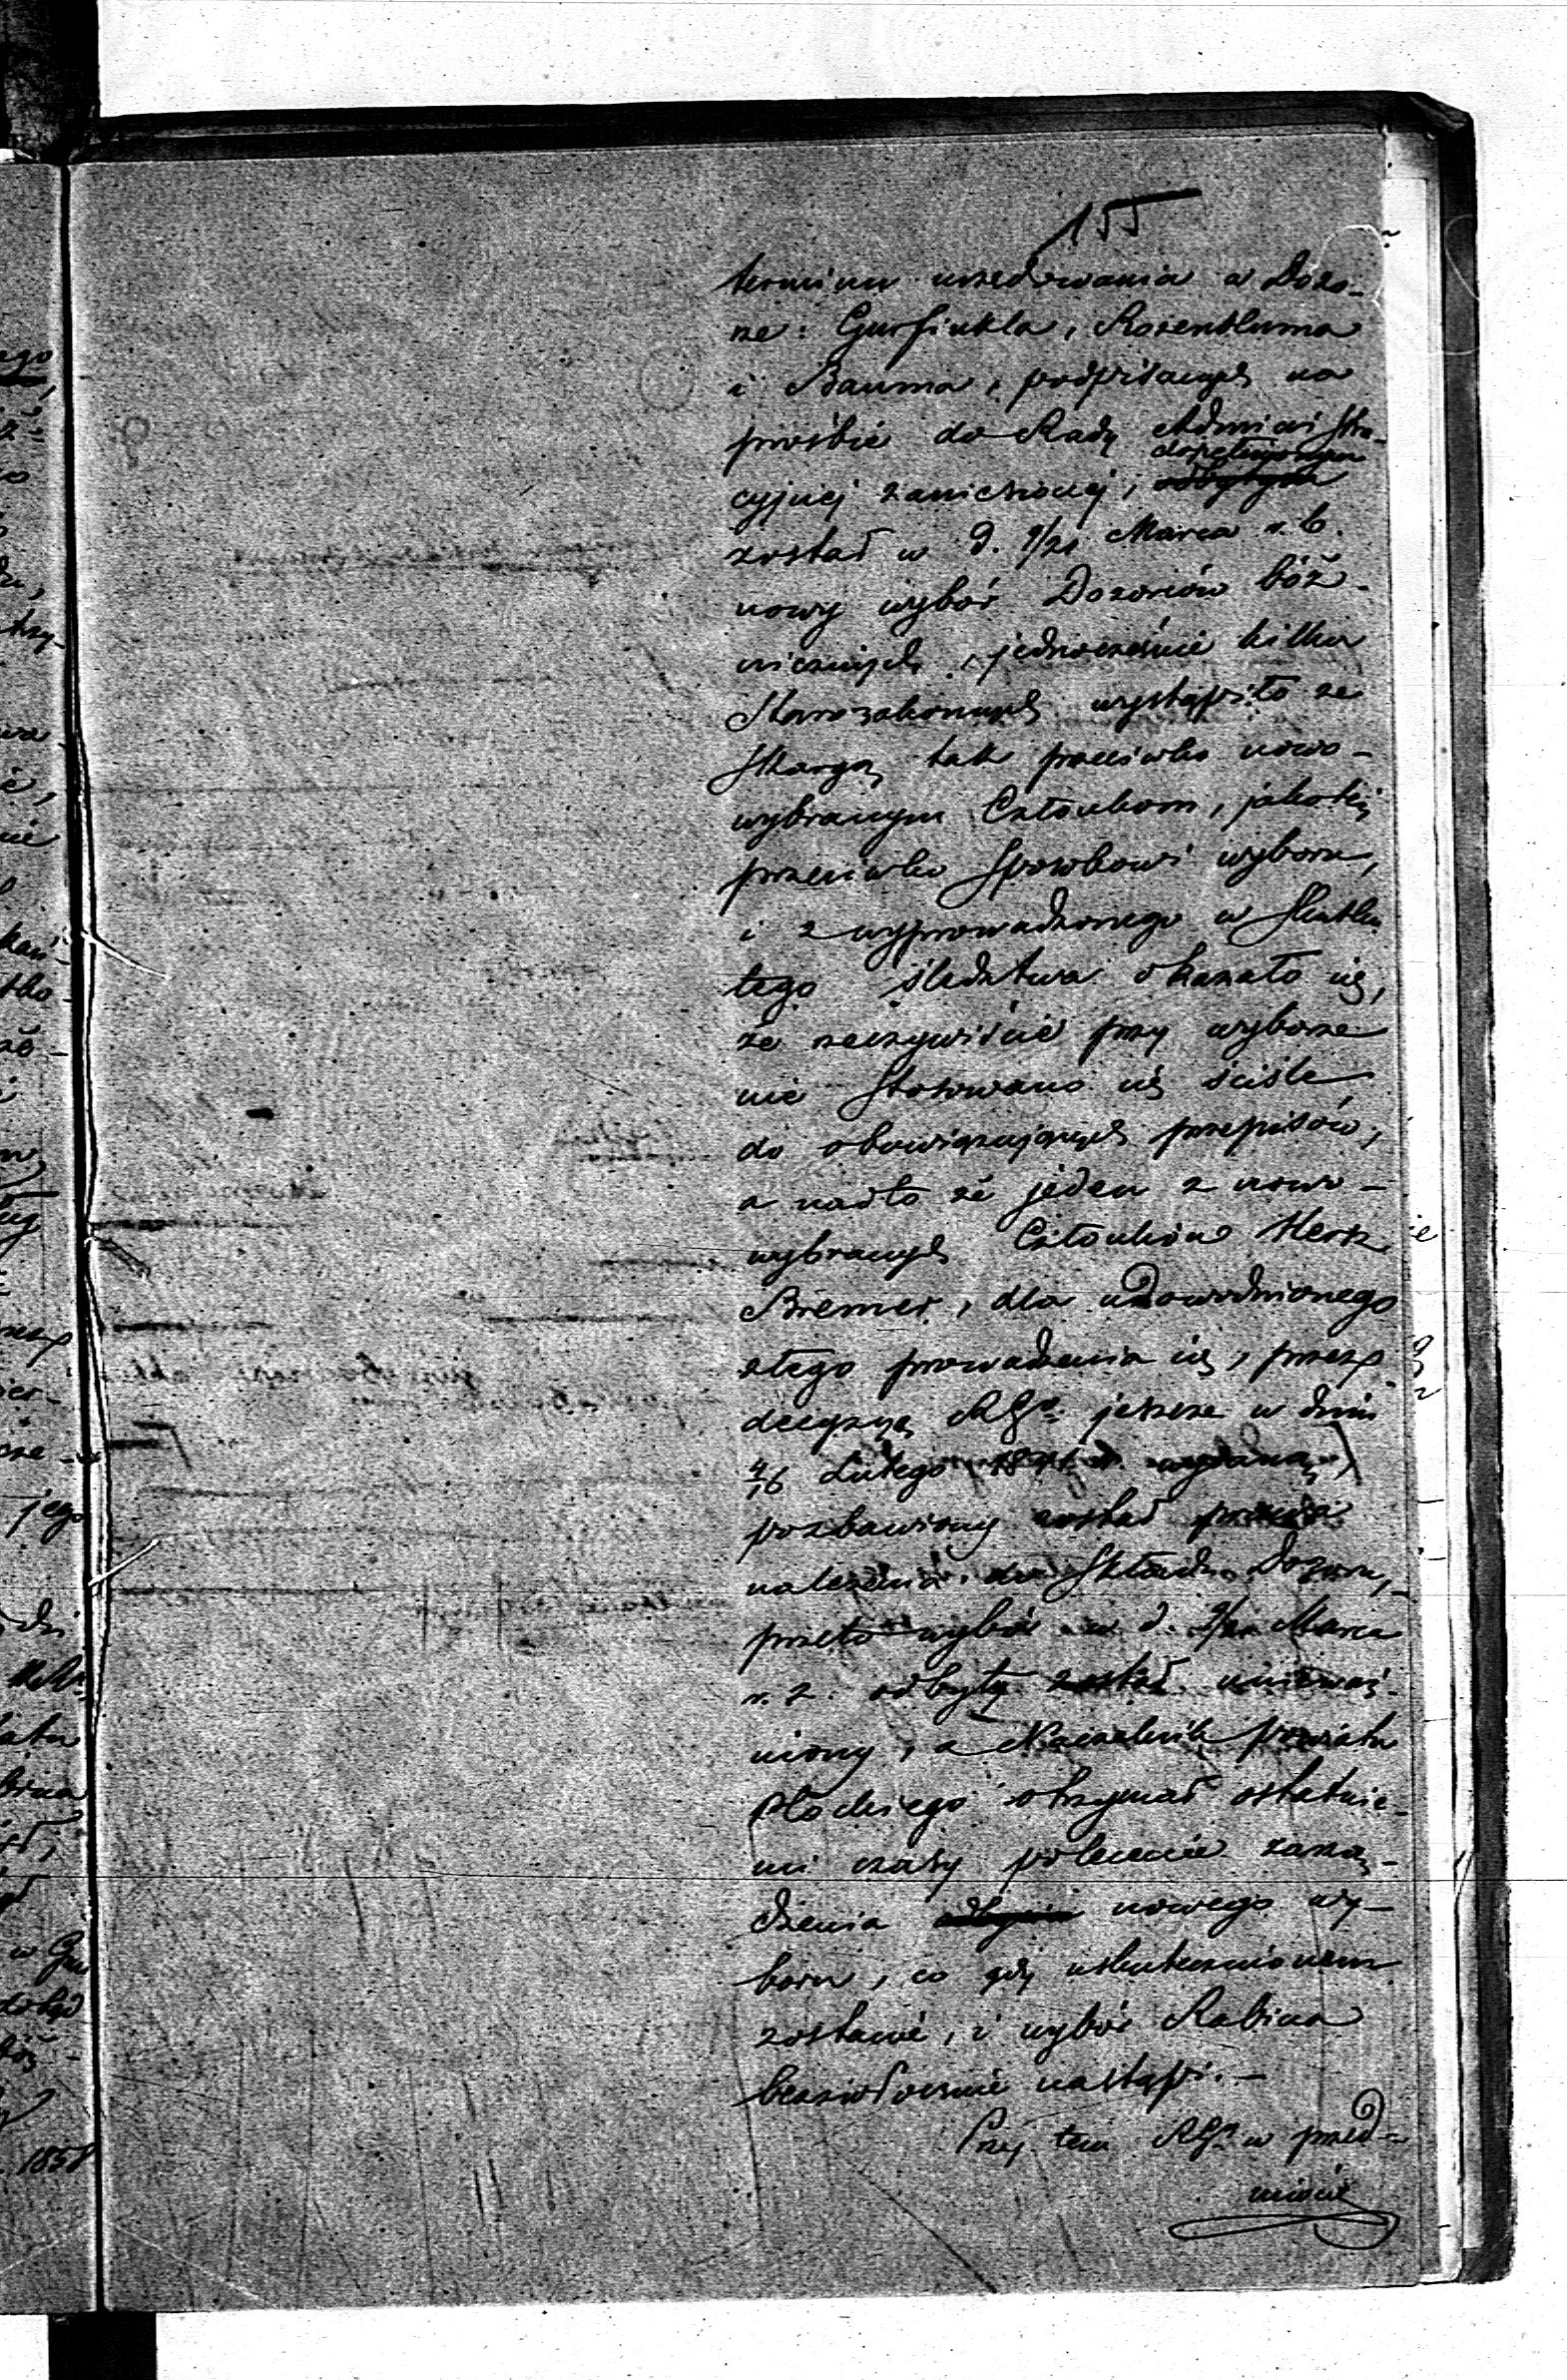 155
terminu urzędowania w Dozo-
rze: Gurfinkla, Rozenbluma
i Bauma, podpisanych na
prośbie do Rady Administra-
dopełnionym
cyjnej zaniesionej, odbytym
został w d. 9/21 Marca r. b.
nowy wybór Dozorców bóż-
niczych, jednocześnie kilku
Starozakonnych wystąpiło ze
skargą tak przeciwko nowo-
wybranym Członkom, jakoteż
przeciwko sposobowi wyboru,
i z wyprowadzonego w skutku
tego śledztwa okazało się,
że rzeczywiście przy wyborze
nie stosowano się ściśle
do obowiązujących przepisów,
a nadto że jeden z nowo-
wybranych Członków Herk
Bremer, dla udowodnionego
złego prowadzenia się, przez
decyzyą RGo jeszcze w dniu
4/16 Lutego wydaną,
pozbawiony został prawa
należenia do składu Dozoru,
przeto wybór w d. 9/21 Marca
r. z. odbyty został unieważ-
niony, a Naczelnik powiatu
Płockiego otrzymał ostatnie-
mi czasy polecenie zarzą-
dzenia odbycia nowego wy-
boru, co gdy uskutecznionem
zostanie, i wybór Rabina
bezzwłocznie nastąpi.-
Przy tem RGo w przed-
miocie